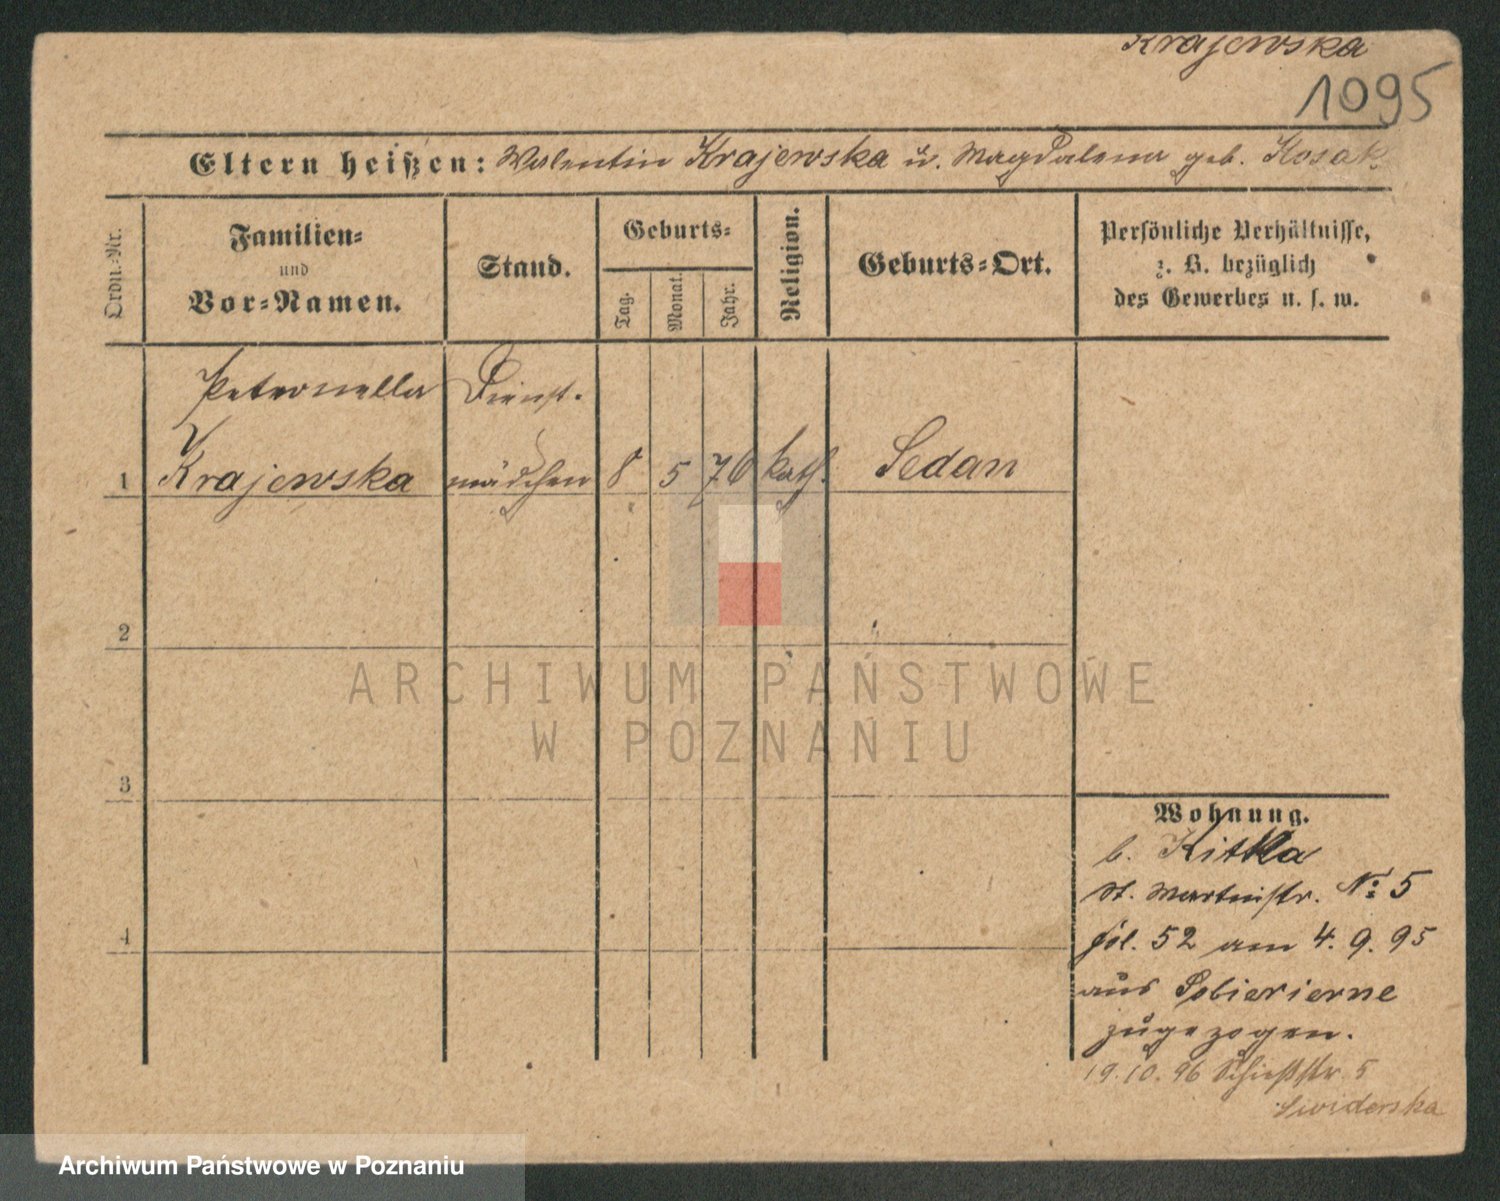 Krajewska
1095
Eltern heißen: Walentin Krajewska u. Magdalena geb. Kosak
Ordn.-Nr.
Familien-
und
Vor-Namen.
Stand.
Geburts-
Tag.
Monat.
Jahr.
Religion.
Geburts-Ort.
Persönliche Verhältnisse,
z. B. bezüglich
des Gewerbes u. s. w.
Petronella Dienst-
1 Krajewska mädchen 8 5 76 kath. Sedan
2
ARCHIWUM PAŃSTWOWE
W POZNANIU
3
Wohnung.
b. Kitka
St. Martinstr. No 5
4
fol. 52 am 4. 9. 95
aus
zugezogen.
19. 10. 96 Schießstr. 5
Swiderska
Archiwum Państwowe w Poznaniu